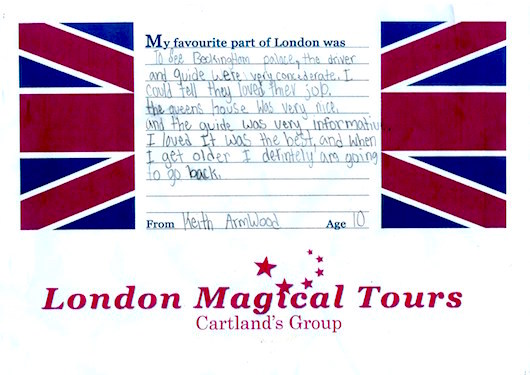 My favourite part of London was
To See Beckingham palace, the driver
and guide were very conciderate. I
could tell they loved their job.
the queens house was very nice.
and the guide was very informative
I loved It was the best, and when
I get older I defintely am going
to go back.
From Keith ArmWood Age 10
London Magical Tours
Cartland's Group